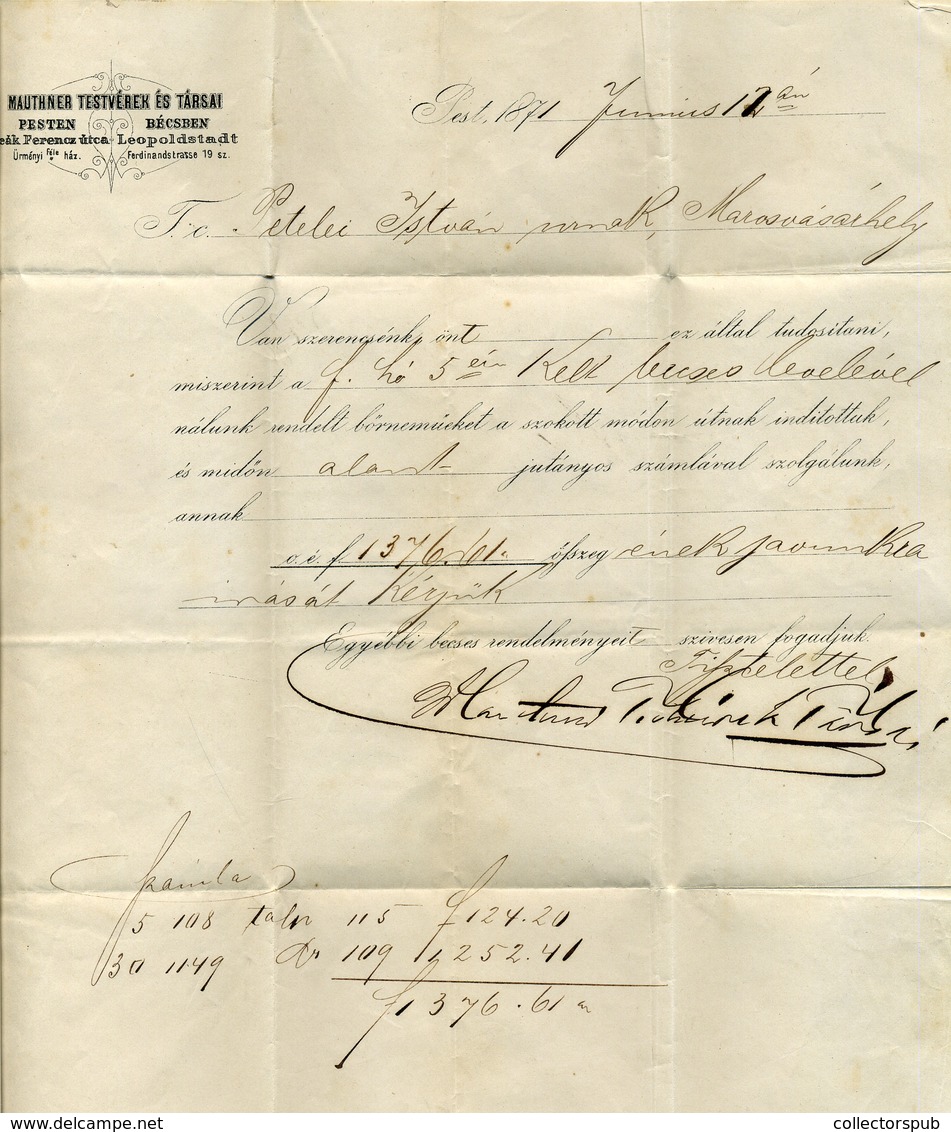 MAUTHNER TESTVÉREK ÉS TÁRSAI
PESTEN BÉCSBEN
eák Ferencz útca Leopoldstadt
Ürményi féle ház. Ferdinandstrasse 19 sz.
Pest, 1871 Junius 12 án
T. c. Petelei István urnak, Marosvásárhely
Van szerencsénk, önt ez által tudositani,
miszerint a f. hó 5 én Kelt becses levelével
nálunk rendelt börnemüeket a szokott módon útnak inditottuk,
és midőn alant jutányos számlával szolgálunk,
annak
o. é. f. 1376.61 öszszeg ének javunkra
irását Kérjük
Egyébbi becses rendelményeit szivesen fogadjuk.
Tisztelettel
Mauthner Testvérek Társai
Számla
5 108 talp 115 f 124.20
30 1149 109 1,252.41
f 1376.61
collectorspub